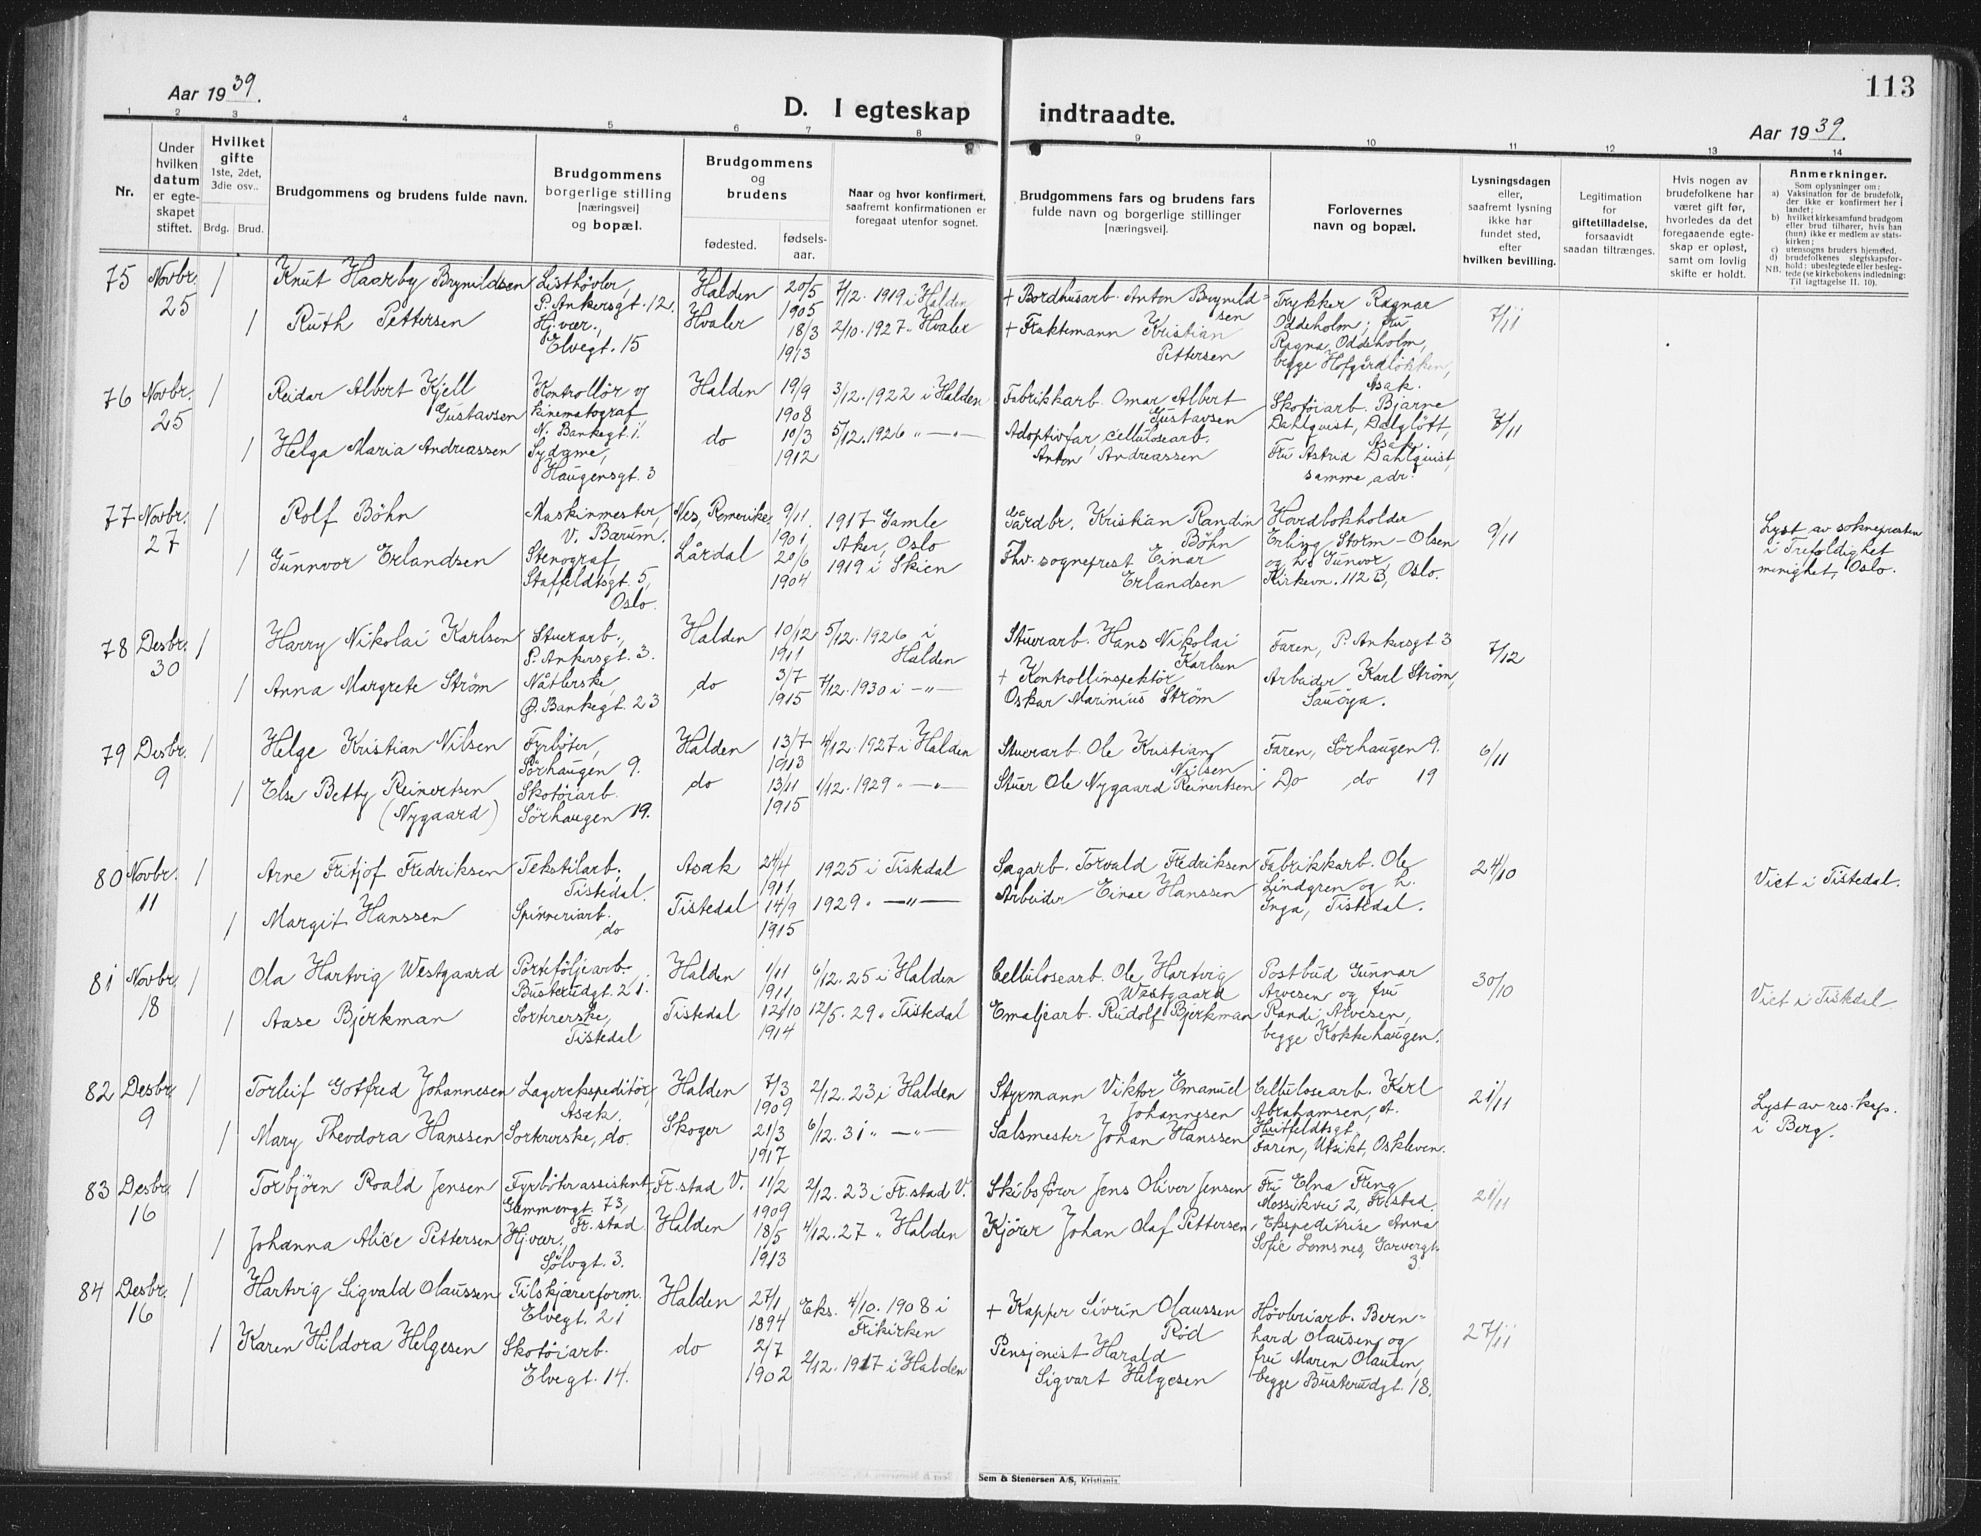 113
Aar 1939.
D. I egteskap indtraadte.
Aar 1939.
1 2 3 4 5 6 7 8 9 10 11 12 13 14
Nr.
Under hvilken datum er egteskapet stiftet.
Hvilket gifte 1ste, 2det, 3die osv..
Brdg. Brud.
Brudgommens og brudens fulde navn.
Brudgommens borgerlige stilling [næringsvei] og bopæl.
Brudgommens og brudens
fødested. fødselsaar.
Naar og hvor konfirmert, saafremt konfirmationen er foregaat utenfor sognet.
Brudgommens fars og brudens fars fulde navn og borgerlige stillinger [næringsvei].
Forlovernes navn og bopæl.
Lysningsdagen eller, saafremt lysning ikke har fundet sted, efter hvilken bevilling.
Legitimation for giftetilladelse, forsaavidt saadan tiltrænges.
Hvis nogen av brudefolkene har været gift før, hvorledes da det foregaaende egteskap er opløst, samt om lovlig skifte er holdt.
Anmerkninger.
Som oplysninger om:
a) Vaksination for de brudefolk, der ikke er konfirmert her i landet;
b) hvilket kirkesamfund brudgom eller brud tilhører, hvis han (hun) ikke er medlem av statskirken;
c) utensogns bruders hjemsted.
d) brudefolkenes slegtskapsforhold: ubeslegtede eller beslegtede (se kirkebokens indledning:
NB. Til iagttagelse II. 10).
75 Novbr. 25 1 Knut Haarby Brynildsen Listhøvler, P. Ankersgt. 12. Halden 20/5 1905 7/12. 1919 i Halden + Bordhusarb. Anton Brynildsen Trykker Ragnar Oddeholm; fru Ragna Oddeholm, begge Hofgårdløkken, Asak. 7/11
1 Ruth Pettersen Hj.vær., Elvegt. 15 Hvaler 18/3 1913 2/10. 1927 " Hvaler + Fraktemann Kristian Pettersen
76 Novbr. 25 1 Reidar Albert Kjell Gustavsen Kontrollør og kinematograf N. Bankegt. 1. Halden 19/9 1908 3/12. 1922 i Halden Fabrikkarb. Omar Albert Gustavsen Skotøiarb. Bjarne Dahlquist, Dalgløtt, Asak. 7/11
1 Helga Maria Andreassen Sydame, Haugensgt. 3 do 10/3 1912 5/12. 1926 " — " — Adoptivfar, cellulosearb. Anton Andreassen Fru Astrid Dahlquist, samme adr.
77 Novbr. 27 1 Rolf Bøhn Maskinmester, V. Bærum. Nes, Romerike 9/11. 1901 1917 Gamle Aker, Oslo Gårdbr. Kristian Randin Bøhn Hovedbokholder Erling Storm-Olsen og h. Gunvor, Kirkevn. 112 B, Oslo. 9/11 Lyst av soknepresten i Trefoldighet menighet, Oslo.
1 Gunnvor Erlandsen Stenograf, Staffeldtsgt. 5, Oslo. Lårdal 20/6 1904 1919 i Skien Fhv. sogneprest Einar Erlandsen
78 Desbr. 30 1 Harry Nikolai Karlsen Stuerarb., P. Ankersgt. 3. Halden 10/12 1911 5/12. 1926 i Halden Stuerarb. Hans Nikolai Karlsen Faren, P. Ankersgt 3 7/12
1 Anna Margrete Strøm Nåtlerske, Ø. Bankegt. 23 do 3/7 1915 7/12. 1930 i — " — + Kontrollinspektør Oskar Marinius Strøm Arbeider Karl Strøm, Sauøya.
79 Desbr. 9 1 Helge Kristian Nilsen Fyrbøter, Sørhaugen 9. Halden 13/7 1913 4/12. 1927 i Halden Stuerarb. Ole Kristian Nilsen Faren, Sørhaugen 9. 6/11
1 Else Betty Reinertsen (Nygaard) Skotøiarb. Sørhaugen 19. do 13/11 1915 1/12. 1929 " — " — Stuer Ole Nygaard Reinertsen Do do 19
80 Novbr. 11 1 Arne Fritjof Fredriksen Tekstilarb. Tistedal. Asak 24/4 1911 1925 i Tistedal Sagarb. Torvald Fredriksen Fabrikkarb. Ole Lindgren og h. Inga, Tistedal. 24/10 Viet i Tistedal.
1 Margit Hanssen Spinneriarb. do Tistedal 14/9 1915 1929 " — " — Arbeider Einar Hanssen
81 Novbr. 18 1 Ola Hartvig Westgaard Porteføljearb. Busterudgt. 21. Halden 1/11 1911 6/12. 25 i Halden Cellulosearb. Ole Hartvig Westgaard Postbud Gunnar Arvesen og fru Randi Arvesen, begge Kokkehaugen. 30/10 Viet i Tistedal
1 Aase Bjerkman Sortererske, Tistedal Tistedal 12/10 1914 12/5. 29 " Tistedal Emaljearb. Rudolf Bjerkman
82 Desbr. 9 1 Torleif Gotfred Johannesen Lagerekspeditør, Asak. Halden 7/3 1909 2/12. 23 i Halden Styrmann Viktor Emanuel Johannesen Cellulosearb. Karl Abrahamsen, A. Huitfeldtsgt. 21/11 Lyst av res. kap. i Berg.
1 Mary Theodora Hanssen Sortererske, do. Skoger 21/3 1917 6/12. 31 " — " — Salsmester Johan Hanssen Faren, Utsikt, Oskleven.
83 Desbr. 16 1 Torbjørn Roald Jensen Fyrbøterassistent, Glemmengt. 73, Fr.stad Fr.stad V. 11/2 1909 2/12. 23 i Fr.stad V. Skibsfører Jens Oliver Jensen Fru Elna Feng, Mossikvei 2, Fr.stad. 21/11
1 Johanna Alice Pettersen Hj.vær. Sølvgt. 3. Halden 18/5 1913 4/12. 27 " Halden Kjører Johan Olaf Pettersen Ekspeditrise Anna Sofie Lomsnes, Garvergt. 3.
84 Desbr. 16 1 Hartvig Sigvald Olaussen Tilskjærerform. Elvegt. 21 Halden 27/1 1894 Eks. 4/10. 1908 i Frikirken + Kapper Sivrin Olaussen Rød Høvleriarb. Bernhard Olausen og fru Maren Olausen, begge Busterudgt. 18. 27/11
1 Karen Hildora Helgesen Skotøiarb. Elvegt. 14. do 2/7 1902 2/12. 1917 i Halden Pensjonist Harald Sigvart Helgesen
Sem & Stenersen A/S, Kristiania.